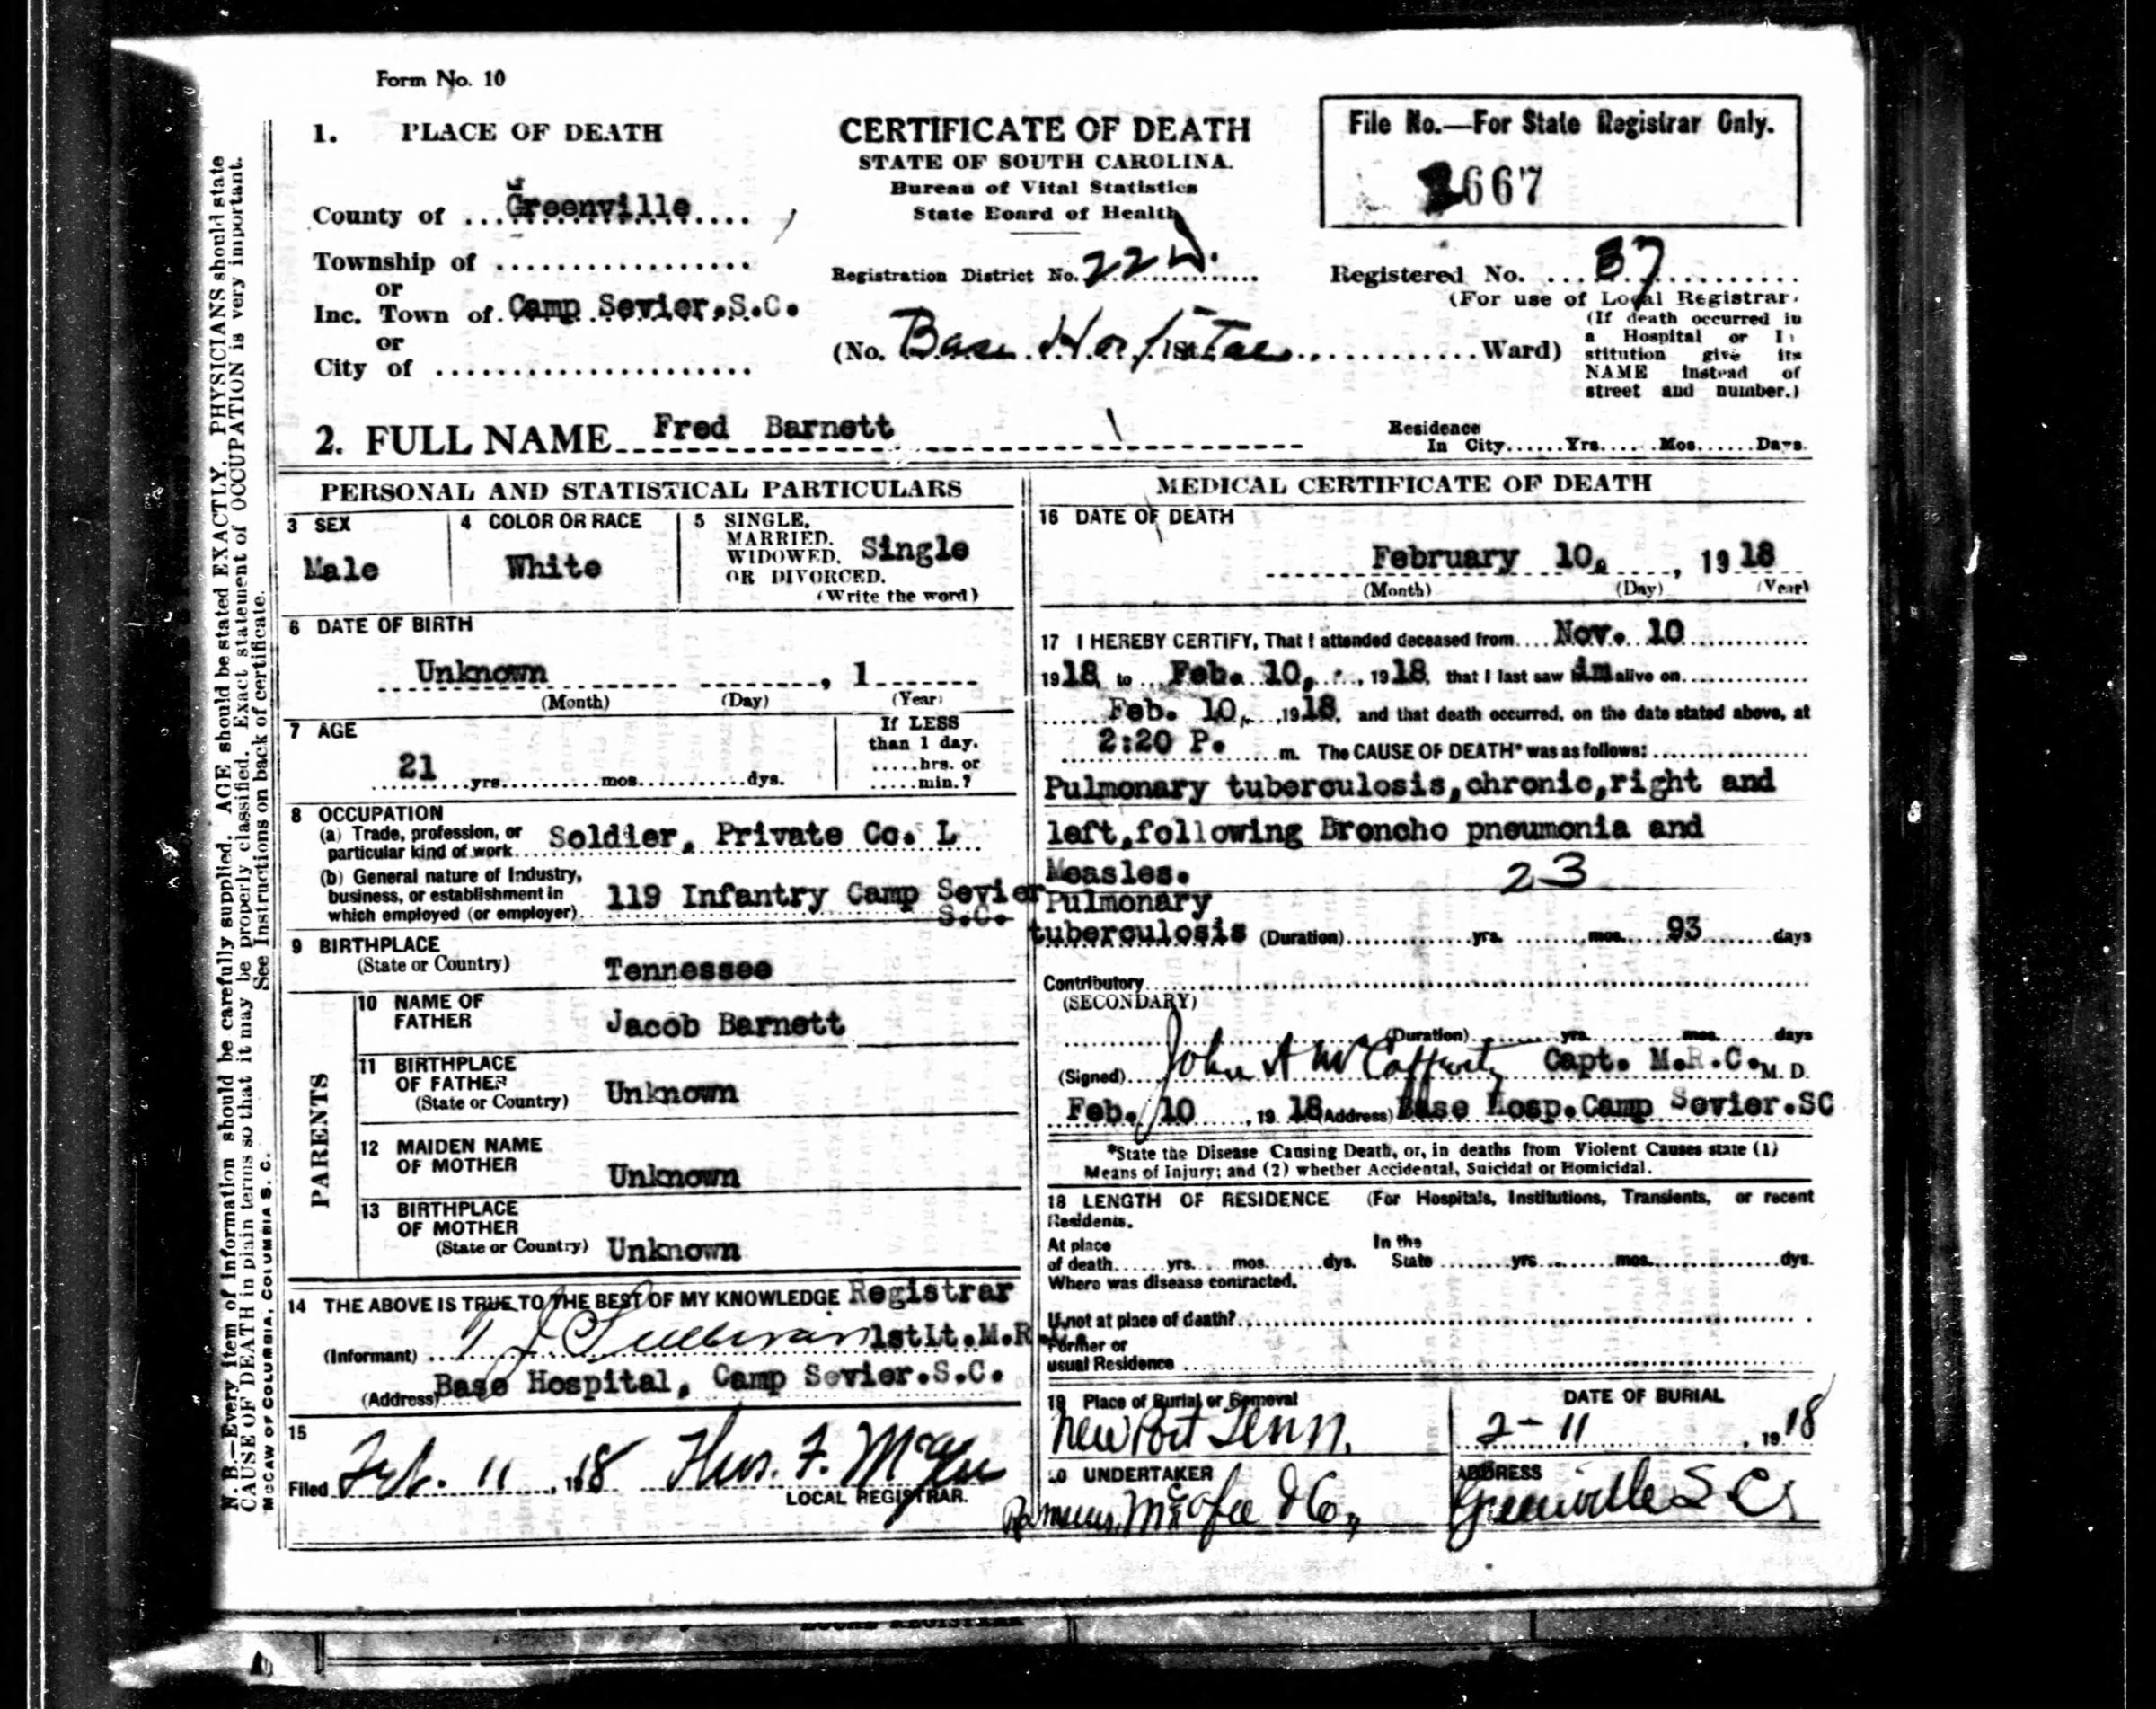 Form No. 10
1. PLACE OF DEATH
County of Greenville
Township of
or
Inc. Town of Camp Sevier.S.C.
or
City of
CERTIFICATE OF DEATH
STATE OF SOUTH CAROLINA.
Bureau of Vital Statistics
State Board of Health
Registration District No. 22
(No. Base Hospital St. Ward)
File No.—For State Registrar Only.
2667
Registered No. 37
(For use of Local Registrar.
(If death occurred in
a Hospital or I
stitution give its
NAME instead of
street and number.)
2. FULL NAME Fred Barnett
Residence
In City......Yrs.....Mos......Days.
PERSONAL AND STATISTICAL PARTICULARS
3 SEX
Male
4 COLOR OR RACE
White
5 SINGLE,
MARRIED.
WIDOWED.
OR DIVORCED.
(Write the word)
Single
6 DATE OF BIRTH
Unknown , 1
(Month) (Day) (Year)
7 AGE
21 yrs. mos. dys.
If LESS
than 1 day.
.....hrs. or
.....min.?
8 OCCUPATION
(a) Trade, profession, or
particular kind of work Soldier, Private Co. L
(b) General nature of Industry,
business, or establishment in
which employed (or employer) 119 Infantry Camp Sevier
S.C.
9 BIRTHPLACE
(State or Country) Tennessee
PARENTS
10 NAME OF
FATHER Jacob Barnett
11 BIRTHPLACE
OF FATHER
(State or Country) Unknown
12 MAIDEN NAME
OF MOTHER Unknown
13 BIRTHPLACE
OF MOTHER
(State or Country) Unknown
14 THE ABOVE IS TRUE TO THE BEST OF MY KNOWLEDGE Registrar
(Informant) J Sullivan 1stLt.M.R.
(Address) Base Hospital, Camp Sevier.S.C.
15
Filed Feb. 11, 1918 Thos. F. McGee
LOCAL REGISTRAR.
MEDICAL CERTIFICATE OF DEATH
16 DATE OF DEATH
February 10, , 1918
(Month) (Day) (Year)
17 I HEREBY CERTIFY, That I attended deceased from Nov. 10
1918 to Feb. 10, , 1918, that I last saw him alive on
Feb. 10, ,1918, and that death occurred, on the date stated above, at
2:20 P. m. The CAUSE OF DEATH* was as follows:
Pulmonary tuberculosis,chronic,right and
left,following Broncho pneumonia and
Measles. 23
Pulmonary
tuberculosis (Duration) yrs. mos. 93 days
Contributory
(SECONDARY)
(Duration) yrs. mos. days
(Signed) John A McCafferty Capt. M.R.C. M. D.
Feb. 10, 1918 (Address) Base Hosp.Camp Sevier.SC
*State the Disease Causing Death, or, in deaths from Violent Causes state (1)
Means of Injury; and (2) whether Accidental, Suicidal or Homicidal.
18 LENGTH OF RESIDENCE (For Hospitals, Institutions, Transients, or recent
Residents.
At place
of death......yrs....mos......dys.
In the
State .......yrs.......mos.......dys.
Where was disease contracted,
If not at place of death?
Former or
usual Residence
19 Place of Burial or Removal
New Port Tenn.
DATE OF BURIAL
2-11, 1918
20 UNDERTAKER
McAfee & Co.,
ADDRESS
Greenville S C
N. B.—Every item of information should be carefully supplied. AGE should be stated EXACTLY. PHYSICIANS should state
CAUSE OF DEATH in plain terms so that it may be properly classified. Exact statement of OCCUPATION is very important.
See Instructions on back of certificate.
McCAW OF COLUMBIA, COLUMBIA S. C.
LOCAL REGISTRAR